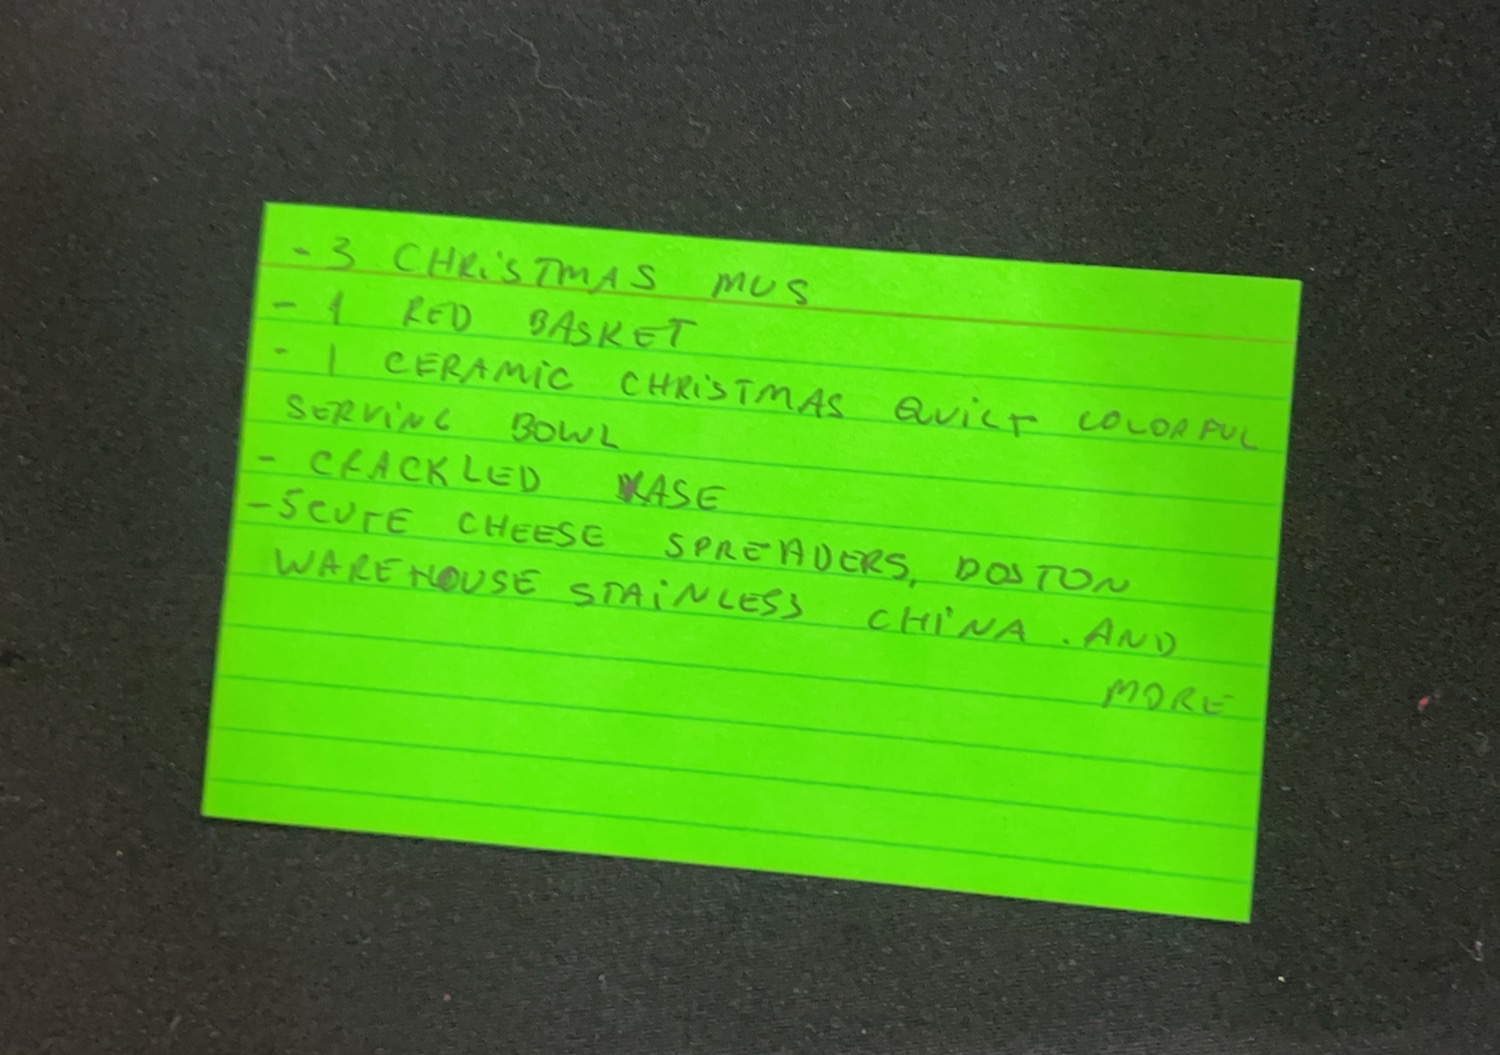 - 3 CHRiSTMAS MUS
- 1 RED BASKET
- 1 CERAMiC CHRiSTMAS QUiLT COLORFUL
SERViNG BOWL
- CRACKLED VASE
- 5 CUTE CHEESE SPREADERS, BOSTON
WAREHOUSE STAiNLESS CHiNA . AND
MORE